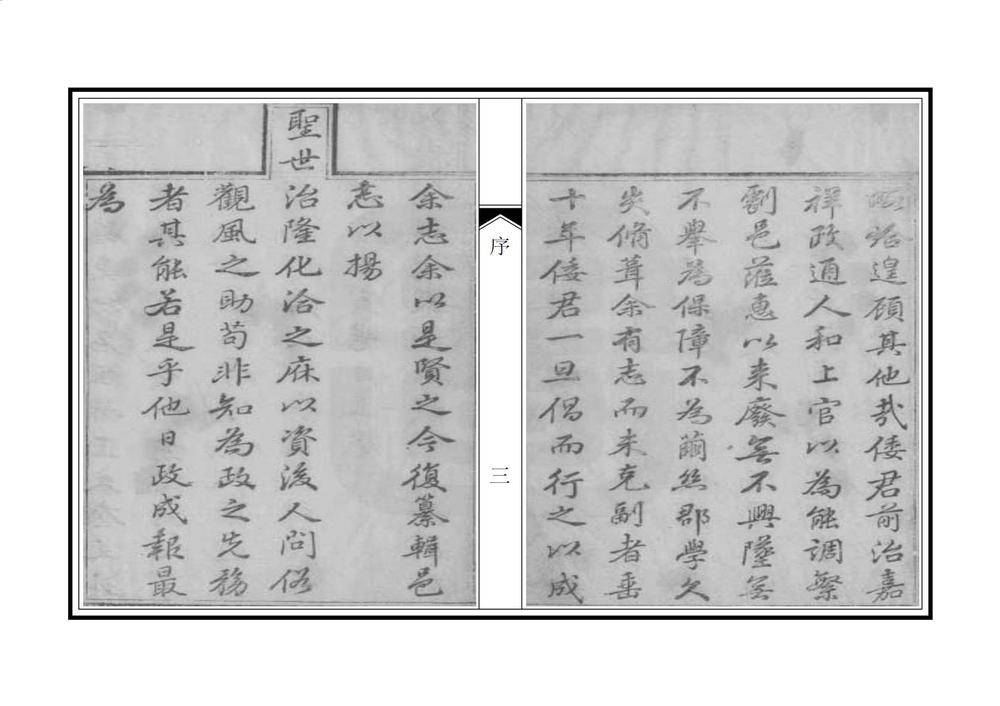 遑顧其他哉倭君前治嘉
祥政通人和上官以為能調繁
劇邑蒞惠以来廢無不興墜無
不舉為保障不為繭絲郡學久
失脩葺余有志而未克副者垂
十年倭君一旦倡而行之以成
序
三
余志余以是賢之今復纂輯邑
志以揚
聖世
治隆化洽之庥以資後人問俗
觀風之助苟非知為政之先務
者其能若是乎他日政成報最
為